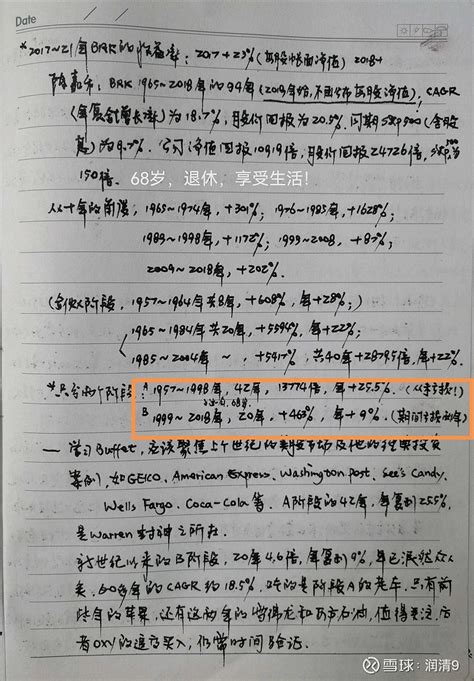 Date
*2017~21年BRK的收益率：2017+23%（每股帐面净值）2018+
BRK 1965~2018年的 年（2019年始，不再公布每股净值），CAGR
（年复合增长率）为18.7%，股价回报为20.5%。同期S&P500（含股
息）为9.7%。 净值回报10919倍，股价回报24726倍，S&P500为
150倍。
68岁，退休，享受生活！
从十年的角度，1965~1974年，+301%；1976~1985年，+1628%；
1989~1998年，+1172%；1999~2008，+87%；
2009~2018年，+202%.
阶段，1957~1964年共8年，+608%，年+28%；）
1965~1984年共20年，+5594%，年+22%；
1985~2004年 ~ ，+5417%，共40年+28795倍，年+22%.
*只分两个阶段：A 1957~1998年，42年，13774倍，年+25.5%.
68岁
B 1999~2018年，20年，+463%，年+9%.
— 学习Buffet，应该聚焦上个世纪的 市场及他的经典投资
案例，如GEICO、American Express、Washington post、See's Candy、
Wells Fargo、Coca-Cola等。A阶段的42年，年复利25.5%，
是Warren封神之所在。
新世纪以来的B阶段，20年4.6倍，年复利9%，早已泯然众人
矣，60多年的CAGR约18.5%，吃的是阶段A的老本。只有前
些年的苹果，还有这两年的 和西方石油，值得关注，
者OXY的 买入，仍需时间验证。
雪球：润清9